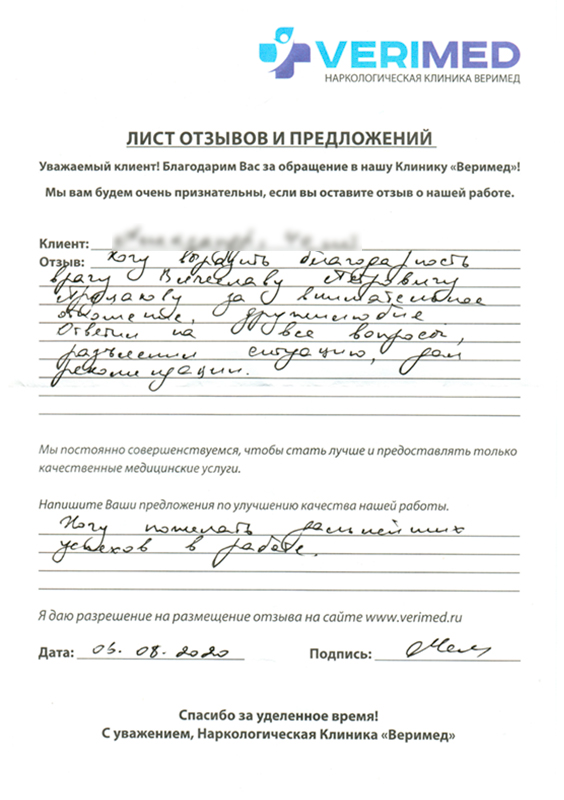 VERIMED
НАРКОЛОГИЧЕСКАЯ КЛИНИКА ВЕРИМЕД
ЛИСТ ОТЗЫВОВ И ПРЕДЛОЖЕНИЙ
Уважаемый клиент! Благодарим Вас за обращение в нашу Клинику «Веримед»!
Мы вам будем очень признательны, если вы оставите отзыв о нашей работе.
Клиент:
Отзыв: Хочу выразить благодарность
врачу Вячеславу Петровичу
за внимательное
отношение, дружелюбие
Ответил на все вопросы,
разъяснил ситуацию, дал
рекомендации.
Мы постоянно совершенствуемся, чтобы стать лучше и предоставлять только
качественные медицинские услуги.
Напишите Ваши предложения по улучшению качества нашей работы.
Хочу пожелать дальнейших
успехов в работе.
Я даю разрешение на размещение отзыва на сайте www.verimed.ru
Дата: 05. 08. 2020 Подпись:
Спасибо за уделенное время!
С уважением, Наркологическая Клиника «Веримед»